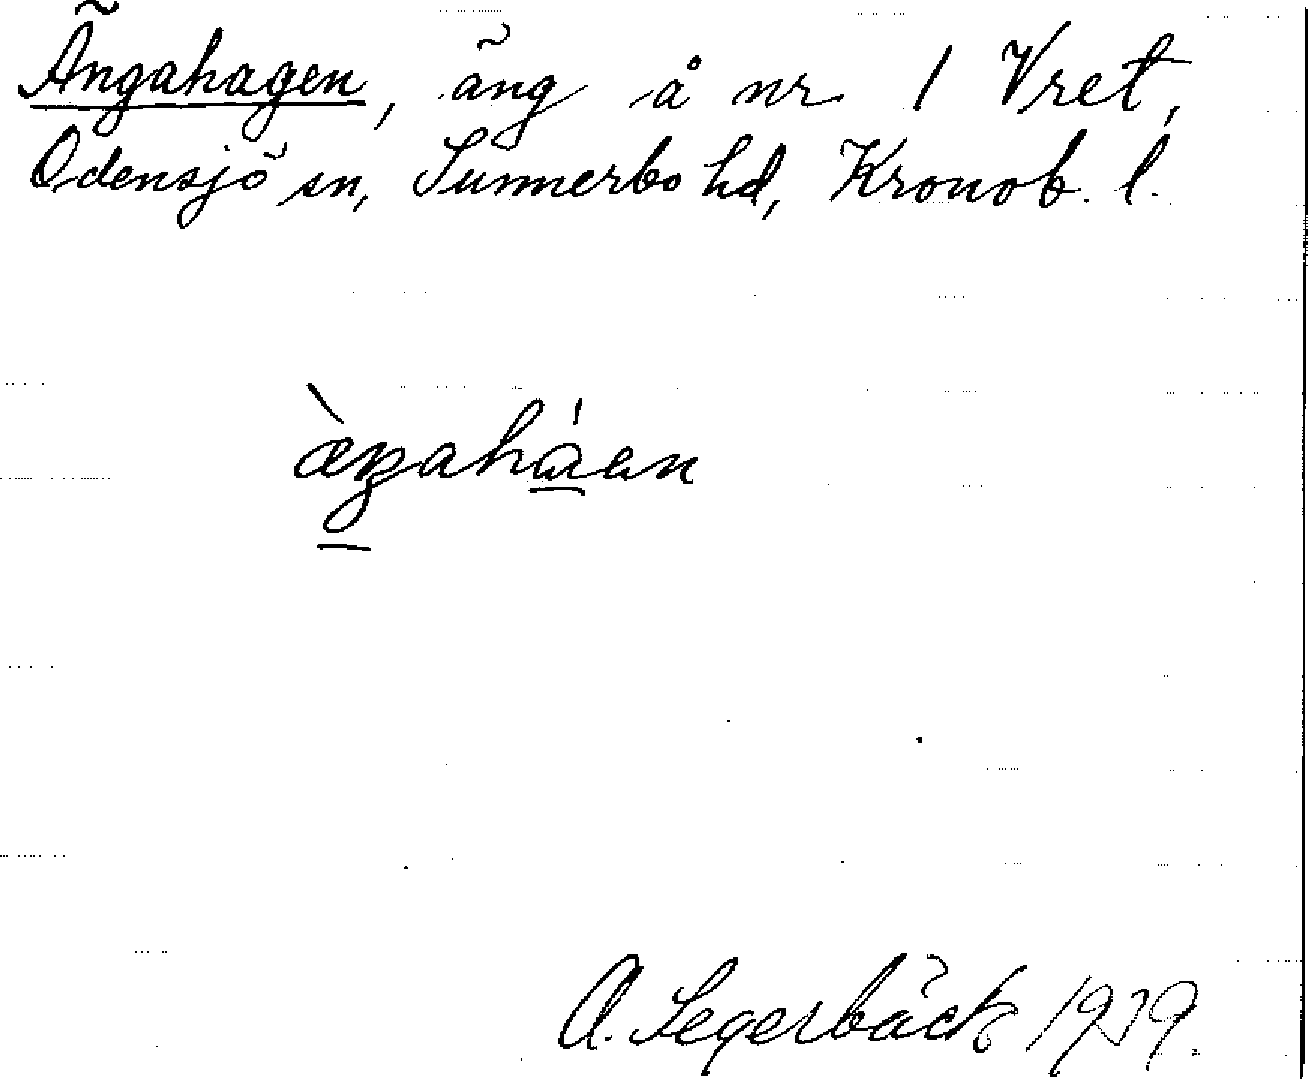 Ängahagen, äng å nr 1 Vret,
Odensjö sn, Sunnerbo hd, Kronob. l.
æ̀ŋaháan
A. Segerbäck 1939.